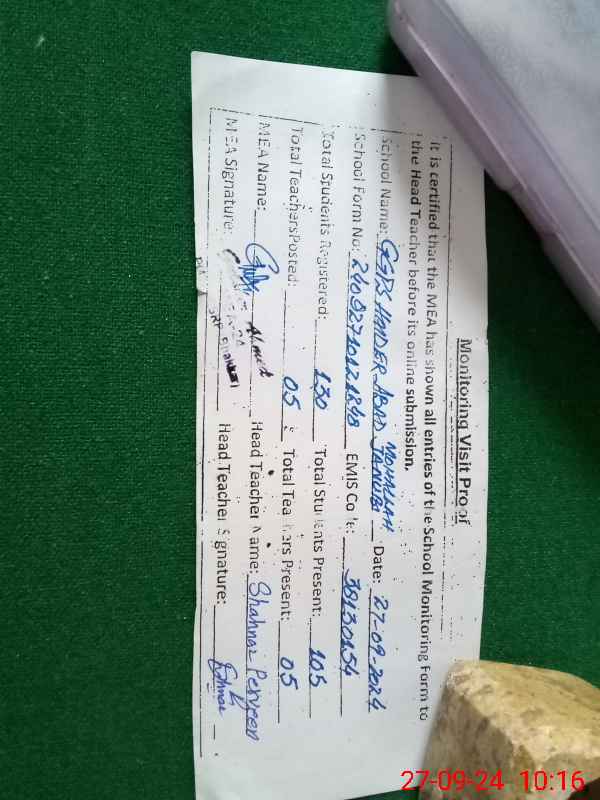 Monitoring Visit Proof
It is certified that the MEA has shown all entries of the School Monitoring Form to
the Head Teacher before its online submission.
School Name: GGPS HAIDER ABAD MOHALLAH JANUBI Date: 27-09-2024
School Form No: EMIS Code: 38130154
Total Students Registered: 130 Total Students Present: 105
Total TeachersPosted: 05 Total Teachers Present: 05
MEA Name: Ahmed Head Teacher Name: Shahnaz Perveen
MEA Signature: Head Teacher Signature:
27-09-24 10:16